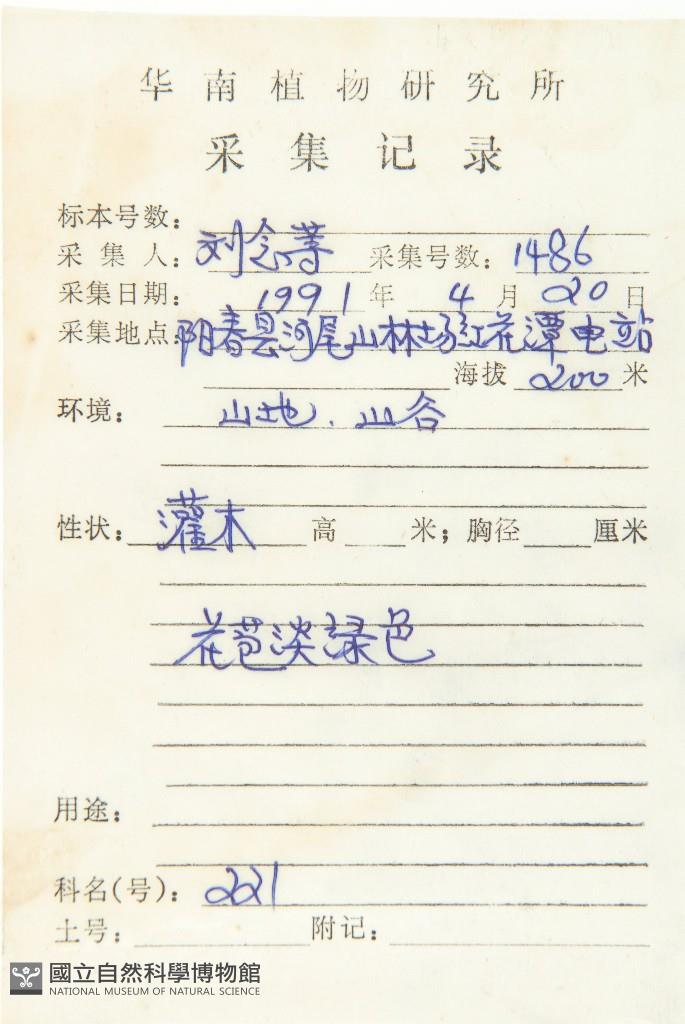 华南植物研究所
采集记录
标本号数:
采集人: 刘念等 采集号数: 1486
采集日期: 1991 年 4 月 20 日
采集地点: 阳春县河尾山林场红花潭电站
海拔 200 米
环境: 山地、山谷
性状: 灌木 高 米; 胸径 厘米
花苞淡绿色
用途:
科名(号): 221
土号: 附记:
國立自然科學博物館
NATIONAL MUSEUM OF NATURAL SCIENCE